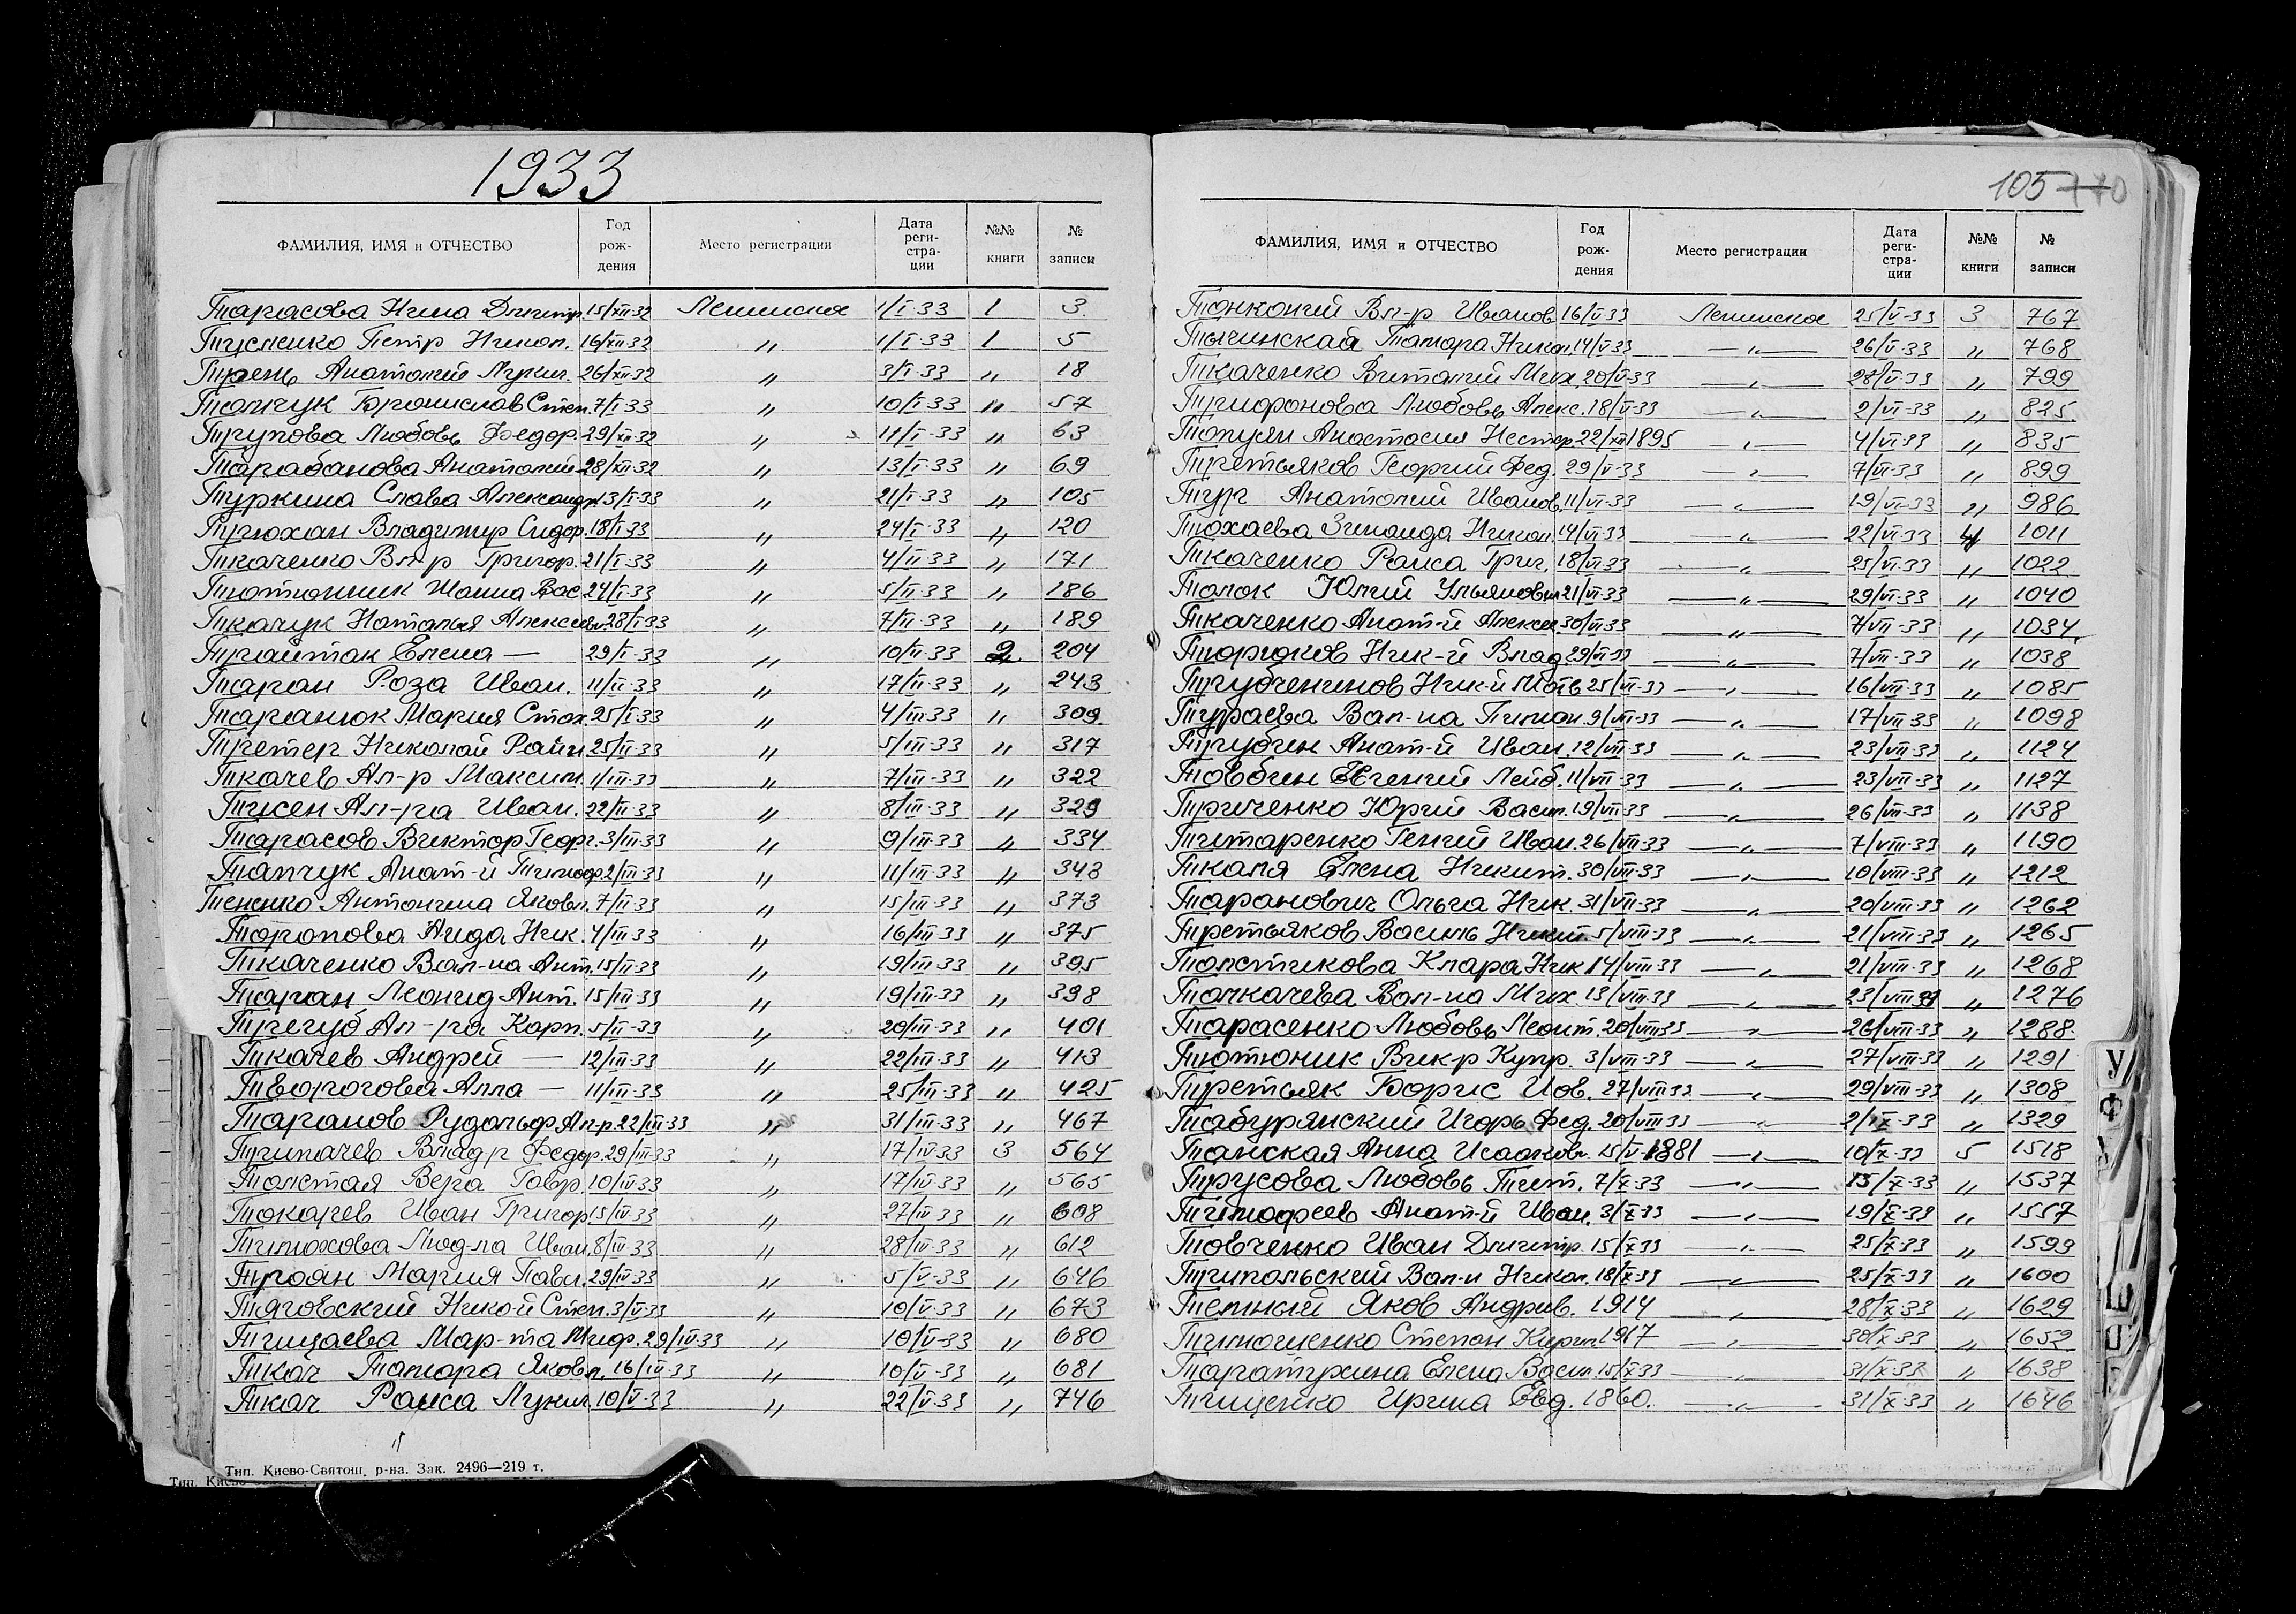 1933
ФАМИЛИЯ, ИМЯ и ОТЧЕСТВО Год рож-дения Место регистрации Дата реги-стра-ции №№ книги № записи
Тарасова Нина Дмитр. 15/XII-32 Ленинское 1/I-33 1 3
Тусленко Петр Никол. 16/XII-32 〃 1/I-33 1 5
Турень Анатолий Лукич. 26/XII-32 〃 3/I-33 〃 18
Толчук Бронислав Степ. 7/I-33 〃 10/I-33 〃 57
Трупова Любовь Федор. 29/XII-32 〃 11/I-33 〃 63
Тарабанова Анатолий 28/XII-32 〃 13/I-33 〃 69
Туркина Слава Александр. 13/I-33 〃 21/I-33 〃 105
Трюхан Владимир Сидор. 18/I-33 〃 24/I-33 〃 120
Ткаченко Вл-р Григор. 21/I-33 〃 4/II-33 〃 171
Тютюнник Жанна Вас. 24/I-33 〃 5/II-33 〃 186
Ткачук Наталья Алексеев. 28/I-33 〃 7/II-33 〃 189
Трайтак Елена — 29/I-33 〃 10/II-33 2 204
Таран Роза Иван. 11/II-33 〃 17/II-33 〃 243
Таранюк Мария Стах. 25/I-33 〃 4/III-33 〃 309
Третер Николай Райн. 25/II-33 〃 5/III-33 〃 317
Ткачев Ал-р Максим. 1/III-33 〃 7/III-33 〃 322
Тисен Ал-ра Иван. 22/II-33 〃 8/III-33 〃 329
Тарасов Виктор Георг. 3/III-33 〃 9/III-33 〃 334
Тапчук Анат-й Тимоф. 2/III-33 〃 11/III-33 〃 348
Тененко Антонина Яковл. 7/II-33 〃 15/III-33 〃 373
Торопова Аида Ник. 4/III-33 〃 16/III-33 〃 375
Ткаченко Вал-на Ант. 15/II-33 〃 19/III-33 〃 395
Таран Леонид Ант. 15/III-33 〃 19/III-33 〃 398
Трегуб Ал-ра Карп. 5/III-33 〃 20/III-33 〃 401
Ткачев Андрей — 12/III-33 〃 22/III-33 〃 413
Творогова Алла — 11/III-33 〃 25/III-33 〃 425
Таранов Рудольф Ал-р. 22/III-33 〃 31/III-33 〃 467
Трипачев Влад-р Федор. 29/III-33 〃 17/IV-33 3 564
Толстая Вера Гавр. 10/IV-33 〃 17/IV-33 〃 565
Токарев Иван Григор. 15/IV-33 〃 27/IV-33 〃 608
Тимохова Люд-ла Иван. 8/IV-33 〃 28/IV-33 〃 612
Троян Мария Павл. 29/IV-33 〃 5/V-33 〃 646
Тяговский Нико-й Степ. 3/V-33 〃 10/V-33 〃 673
Тищаева Мар-та Миф. 29/IV-33 〃 10/V-33 〃 680
Ткач Тамара Яковл. 16/IV-33 〃 10/V-33 〃 681
Ткач Раиса Лукич. 10/V-33 〃 22/V-33 〃 746
Тип. Киево-Святош. р-на. Зак. 2496—219 т.
105
ФАМИЛИЯ, ИМЯ и ОТЧЕСТВО Год рож-дения Место регистрации Дата реги-стра-ции №№ книги № записи
Тонконий Вл-р Иванов. 16/V-33 Ленинское 25/V-33 3 767
Тычинская Тамара Никол. 14/V-33 〃 26/V-33 〃 768
Ткаченко Виталий Мих. 20/V-33 〃 28/V-33 〃 799
Трифонова Любовь Алекс. 18/V-33 〃 2/VI-33 〃 825
Топули Анастасия Нестер. 22/XII 1895 〃 4/VI-33 〃 835
Третьяков Георгий Фед. 29/V-33 〃 7/VI-33 〃 899
Тур Анатолий Иванов. 11/VI-33 〃 19/VI-33 〃 986
Тохаева Зинаида Никол. 14/VI-33 〃 22/VI-33 4 1011
Ткаченко Раиса Григ. 18/VI-33 〃 25/VI-33 〃 1022
Толок Юлий Ульянович 21/VI-33 〃 29/VI-33 〃 1040
Ткаченко Анат-й Алексе. 30/VI-33 〃 7/VII-33 〃 1034
Торяков Ник-й Влад. 29/VI-33 〃 7/VII-33 〃 1038
Трубченинов Ник-й Матв. 25/VI-33 〃 16/VII-33 〃 1085
Тураева Вал-на Тимон. 9/VII-33 〃 17/VII-33 〃 1098
Трубчек Анат-й Иван. 12/VII-33 〃 23/VII-33 〃 1124
Товбин Евгений Лейб. 11/VII-33 〃 23/VII-33 〃 1127
Триченко Юрий Васил. 19/VII-33 〃 26/VII-33 〃 1138
Титаренко Гений Иван. 26/VII-33 〃 7/VIII-33 〃 1190
Ткаля Елена Никит. 30/VII-33 〃 10/VIII-33 〃 1212
Таранович Ольга Ник. 31/VII-33 〃 20/VIII-33 〃 1262
Третьяков Василь Никит. 5/VIII-33 〃 21/VIII-33 〃 1265
Толстикова Клара Ник. 14/VIII-33 〃 21/VIII-33 〃 1268
Толкачева Вал-на Мих. 13/VIII-33 〃 23/VIII-33 〃 1276
Тарасенко Любовь Леонт. 20/VIII-33 〃 26/VIII-33 〃 1288
Тютюник Вик-р Купр. 3/VIII-33 〃 27/VIII-33 〃 1291
Третьяк Борис Иов. 27/VIII-33 〃 29/VIII-33 〃 1308
Табурянский Игорь Фед. 20/VIII-33 〃 2/IX-33 〃 1329
Танская Анна Исааковн. 15/V-1881 〃 10/X-33 5 1518
Трусова Любовь Тит. 7/X-33 〃 15/X-33 〃 1537
Тимофеев Анат-й Иван. 3/X-33 〃 19/X-33 〃 1557
Товченко Иван Дмитр. 15/X-33 〃 25/X-33 〃 1599
Трипольский Вал-й Никол. 18/X-33 〃 25/X-33 〃 1600
Темный Яков Андрив. 1914 〃 28/X-33 〃 1629
Тимошенко Степан Кирил. 1917 〃 30/X-33 〃 1652
Таратухина Елена Васил. 15/X-33 〃 31/X-33 〃 1638
Тищенко Ирина Евд. 1860. 〃 31/X-33 〃 1646
У
Ф